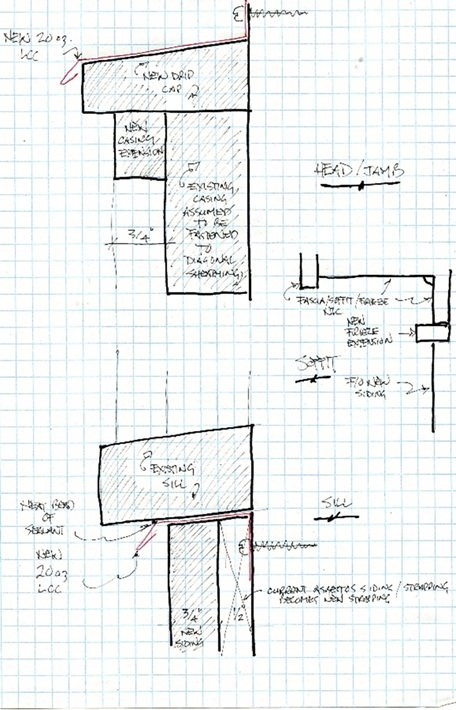 NEW 20 oz.
LCC
NEW DRIP
CAP
NEW
CASING
EXTENSION
EXISTING
CASING
ASSUMED
TO BE
FASTENED
TO
DIAGONAL
SHEATHING
3/4"
HEAD/JAMB
FASCIA/SOFFIT/FRIEZE
NIC
NEW
FRIEZE
EXTENSION
SOFFIT
F/O NEW
SIDING
EXISTING
SILL
SILL
NEAT BEAD
OF
SEALANT
NEW
20 oz
LCC
3/4"
NEW
SIDING
1/2"
CURRENT ASBESTOS SIDING/STRAPPING
BECOMES NEW STRAPPING